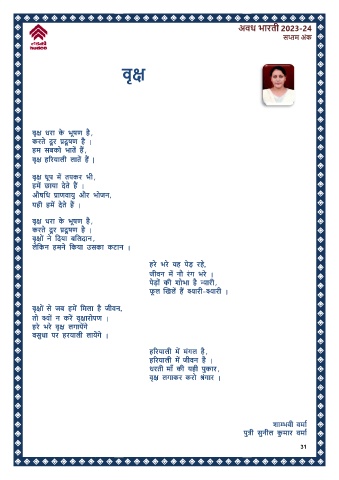 अवध भारती 2023-24
सप्तम अंक
hudco
वृक्ष
वृक्ष धरा के भूषण है,
करते दूर प्रदूषण है ।
हम सबको भातें हैं,
वृक्ष हरियाली लातें हैं ।
वृक्ष धूप में तपकर भी,
हमें छाया देते हैं ।
औषधि प्राणवायु और भोजन,
यही हमें देते हैं ।
वृक्ष धरा के भूषण है,
करते दूर प्रदूषण है ।
वृक्षों ने दिया बलिदान,
लेकिन हमने किया उसका कटान ।
हरे भरे यह पेड़ रहे,
जीवन में नौ रंग भरे ।
पेड़ों की शोभा है न्यारी,
फूल खिलें हैं क्यारी-क्यारी ।
वृक्षों से जब हमें मिला है जीवन,
तो क्यों न करें वृक्षारोपण ।
हरे भरे वृक्ष लगायेंगे
वसुधा पर हरयाली लायेंगे ।
हरियाली में मंगल है,
हरियाली में जीवन है ।
धरती माँ की यही पुकार,
वृक्ष लगाकर करो श्रंगार ।
शाम्भवी वर्मा
पुत्री सुनील कुमार वर्मा
31